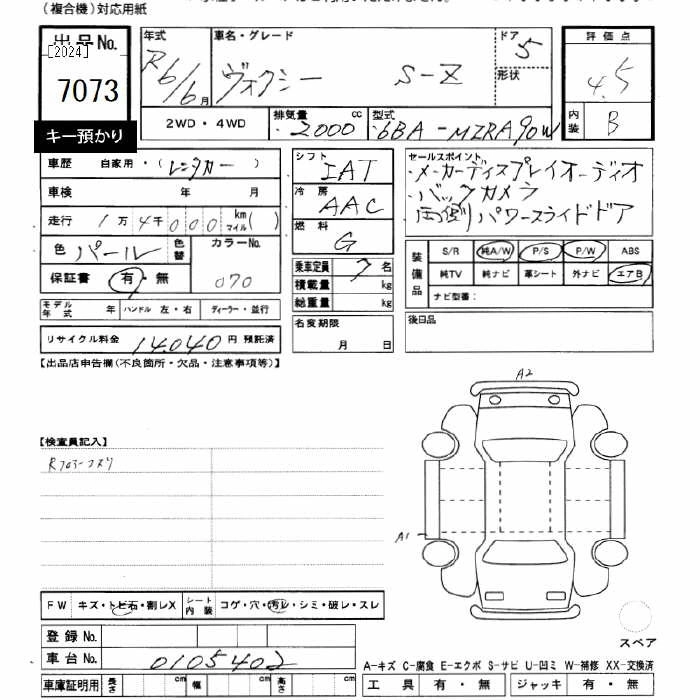 (複合機)対応用紙
出品No.
[2024]
7073
キー預かり
年式
R6/6月
車名・グレード
ヴォクシー S-Z
ドア
5
形状
評価点
4.5
内装
B
2WD・4WD
排気量 cc
2000
型式
6BA-MZRA90W
車歴 自家用・(レンタカー)
車検 年 月
走行 1万4千000 km マイル( )
色 パール
色替
カラーNo.
070
保証書 有・無
シフト
IAT
冷房
AAC
燃料
G
乗車定員 7名
積載量 kg
総重量 kg
セールスポイント
・メーカーディスプレイオーディオ
・バックカメラ
両側パワースライドドア
装備品
S/R 純A/W P/S P/W ABS
純TV 純ナビ 革シート 外ナビ エアB
ナビ型番:
モデル年式 年 ハンドル 左・右 ディーラー・並行
リサイクル料金 14,040円 預託済
名変期限
月 日
後日品
【出品店申告欄(不良箇所・欠品・注意事項等)】
A2
【検査員記入】
A1
FW キズ・トビ石・割レX
シート内装 コゲ・穴・汚レ・シミ・破レ・スレ
登録No.
車台No. 0105402
スペア
A-キズ C-腐食 E-エクボ S-サビ U-凹ミ W-補修 XX-交換済
車庫証明用 長さ cm 幅 cm 高さ cm
工具 有・無 ジャッキ 有・無